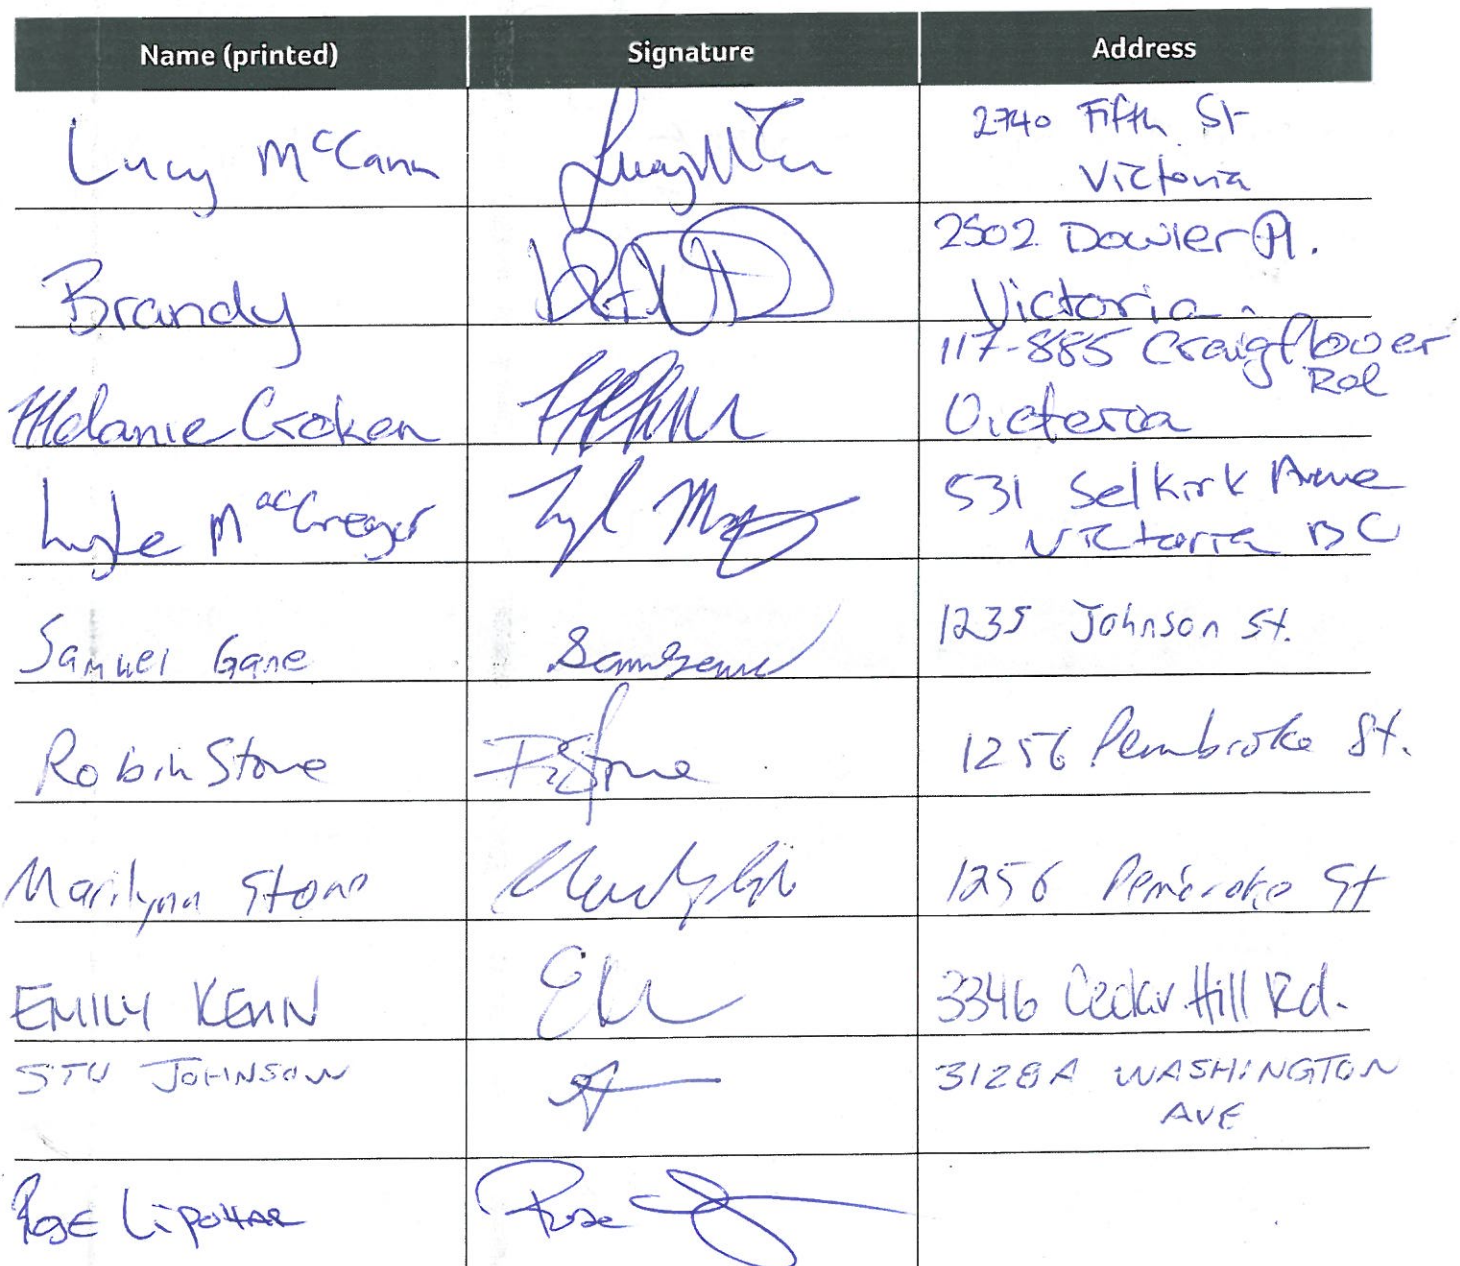 Name (printed) Signature Address
Lucy McCann
2740 Fifth St
Victoria
Brandy
2502 Dowler Pl.
Victoria
Melanie Croken
117-885 Craigflower
Rd
Victoria
Lyle MacGregor
531 Selkirk Avenue
Victoria BC
Samuel Gane
1235 Johnson St.
Robin Stone
RStone
1256 Pembroke St.
Marilynn Stone
1256 Pembroke St
EMILY KENN
3346 Cedar Hill Rd.
STU JOHNSON
3128A WASHINGTON
AVE
ROSE
Rose